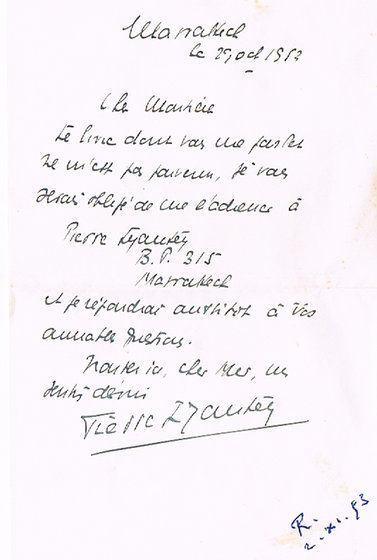 Marrakech
le 29 oct 1953
Cher Monsieur
Le livre dont vous me parlez
ne m'est pas parvenu, je vous
serais obligé de me l'adresser à
Pierre
B.P. 315
Marrakech
et je répondrai aussitôt à vos
aimables questions.
cher Mr, mes
Pierre
R.
2. XI. 53